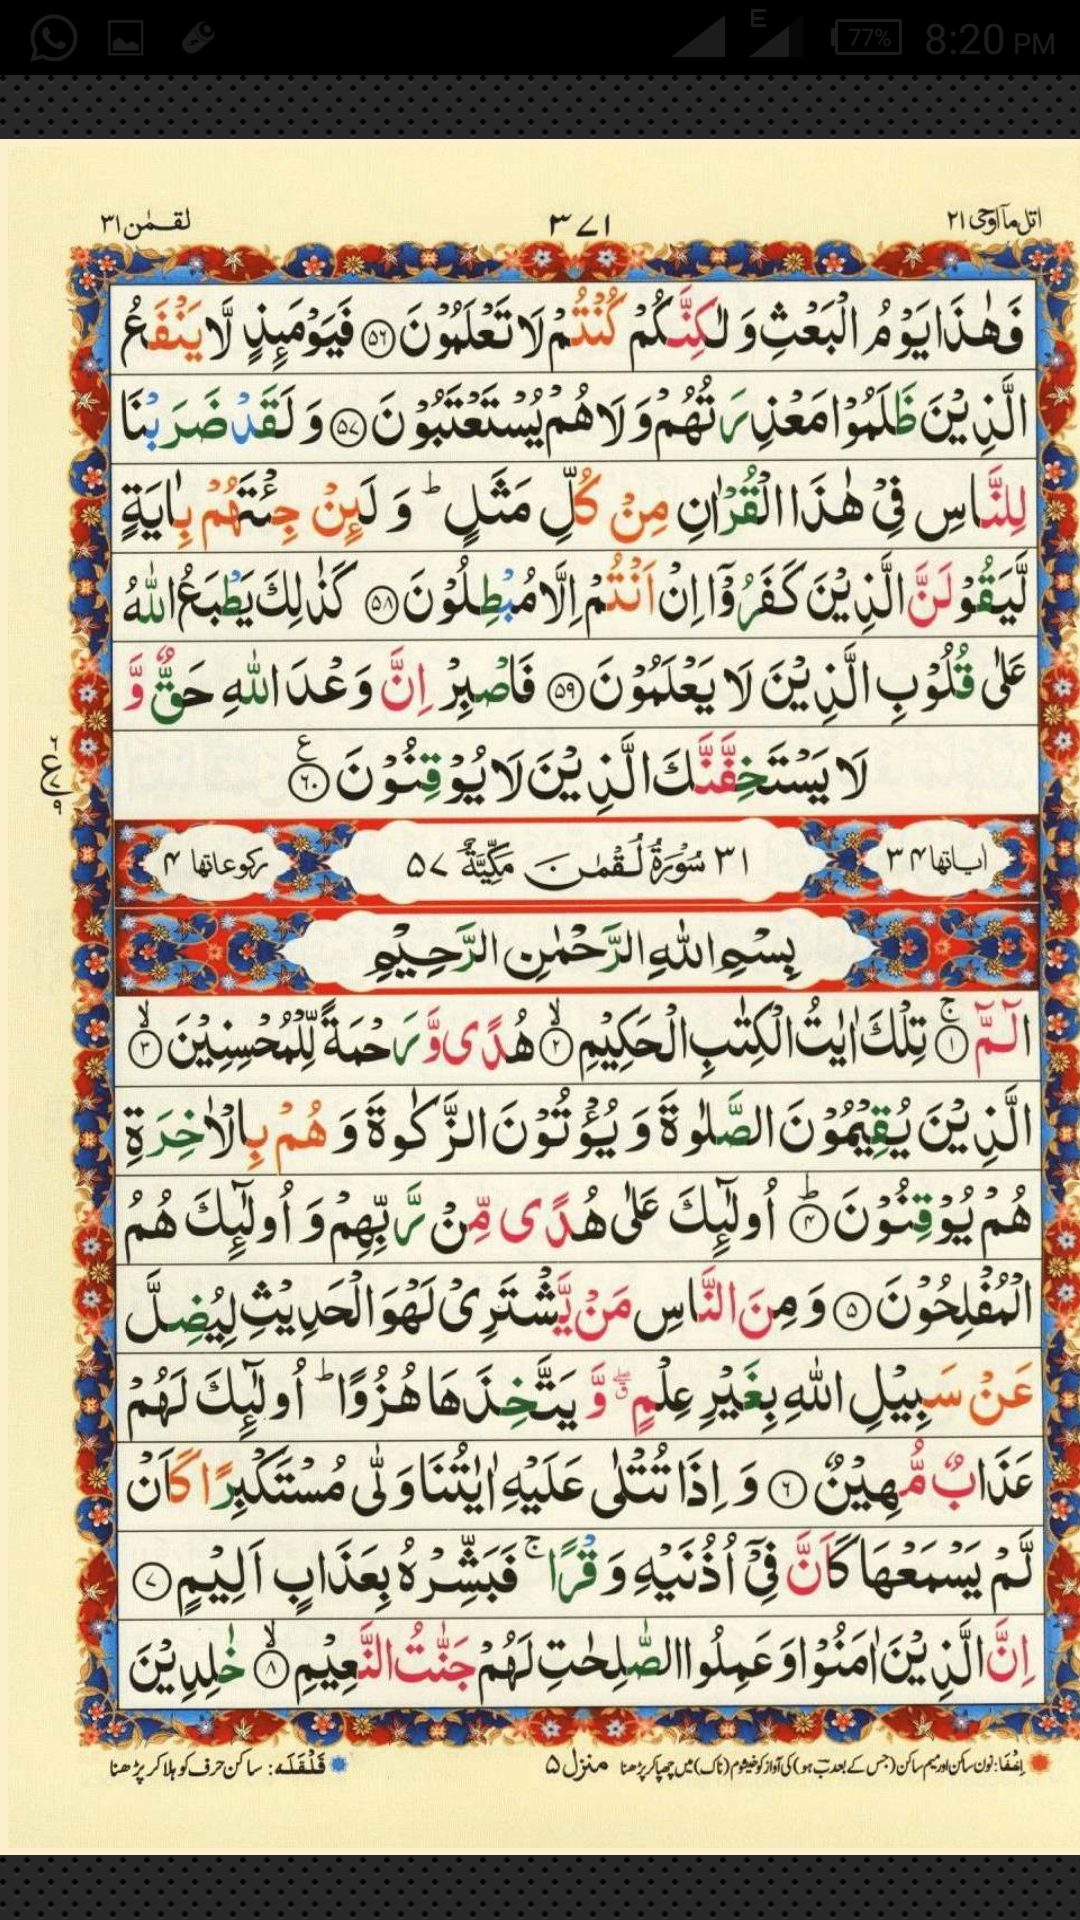 E 77% 8:20 PM
اتل مآ اوحی ۲۱ ۳۷۱ لقمٰن ۳۱
فَهٰذَا يَوْمُ الْبَعْثِ وَ لٰكِنَّكُمْ كُنْتُمْ لَا تَعْلَمُوْنَ ۝۵۶ فَيَوْمَىِٕذٍ لَّا يَنْفَعُ
الَّذِيْنَ ظَلَمُوْا مَعْذِرَتُهُمْ وَ لَا هُمْ يُسْتَعْتَبُوْنَ ۝۵۷ وَ لَقَدْ ضَرَبْنَا
لِلنَّاسِ فِیْ هٰذَا الْقُرْاٰنِ مِنْ كُلِّ مَثَلٍ ؕ وَ لَىِٕنْ جِئْتَهُمْ بِاٰيَةٍ
لَّيَقُوْلَنَّ الَّذِيْنَ كَفَرُوْۤا اِنْ اَنْتُمْ اِلَّا مُبْطِلُوْنَ ۝۵۸ كَذٰلِكَ يَطْبَعُ اللّٰهُ
عَلٰى قُلُوْبِ الَّذِيْنَ لَا يَعْلَمُوْنَ ۝۵۹ فَاصْبِرْ اِنَّ وَعْدَ اللّٰهِ حَقٌّ وَّ
لَا يَسْتَخِفَّنَّكَ الَّذِيْنَ لَا يُوْقِنُوْنَ ۝۶۰ ع
اٰیاتها ۳۴ ۳۱ سُوْرَةُ لُقْمٰنَ مَكِّيَّةٌ ۵۷ ركوعاتها ۴
بِسْمِ اللّٰهِ الرَّحْمٰنِ الرَّحِيْمِ
الٓمّٓ ۝۱ۚ تِلْكَ اٰيٰتُ الْكِتٰبِ الْحَكِيْمِ ۝۲ۙ هُدًى وَّ رَحْمَةً لِّلْمُحْسِنِيْنَ ۝۳ۙ
الَّذِيْنَ يُقِيْمُوْنَ الصَّلٰوةَ وَ يُؤْتُوْنَ الزَّكٰوةَ وَ هُمْ بِالْاٰخِرَةِ
هُمْ يُوْقِنُوْنَ ۝۴ؕ اُولٰٓىِٕكَ عَلٰى هُدًى مِّنْ رَّبِّهِمْ وَ اُولٰٓىِٕكَ هُمُ
الْمُفْلِحُوْنَ ۝۵ وَ مِنَ النَّاسِ مَنْ يَّشْتَرِیْ لَهْوَ الْحَدِيْثِ لِيُضِلَّ
عَنْ سَبِيْلِ اللّٰهِ بِغَيْرِ عِلْمٍ ۖۗ وَّ يَتَّخِذَهَا هُزُوًا ؕ اُولٰٓىِٕكَ لَهُمْ
عَذَابٌ مُّهِيْنٌ ۝۶ وَ اِذَا تُتْلٰى عَلَيْهِ اٰيٰتُنَا وَلّٰى مُسْتَكْبِرًا كَاَنْ
لَّمْ يَسْمَعْهَا كَاَنَّ فِیْۤ اُذُنَيْهِ وَقْرًا ۚ فَبَشِّرْهُ بِعَذَابٍ اَلِيْمٍ ۝۷
اِنَّ الَّذِيْنَ اٰمَنُوْا وَ عَمِلُوا الصّٰلِحٰتِ لَهُمْ جَنّٰتُ النَّعِيْمِ ۝۸ۙ خٰلِدِيْنَ
اِخْفَا: نون ساکن اور میم ساکن (جس کے بعد ب ہو) کی آواز کو خیشوم (ناک) میں چھپا کر پڑھنا منزل ۵ قَلْقَلَه: ساکن حرف کو ہلا کر پڑھنا